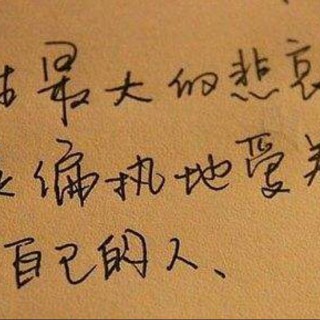 最大的悲哀
偏执地爱
自己的人、